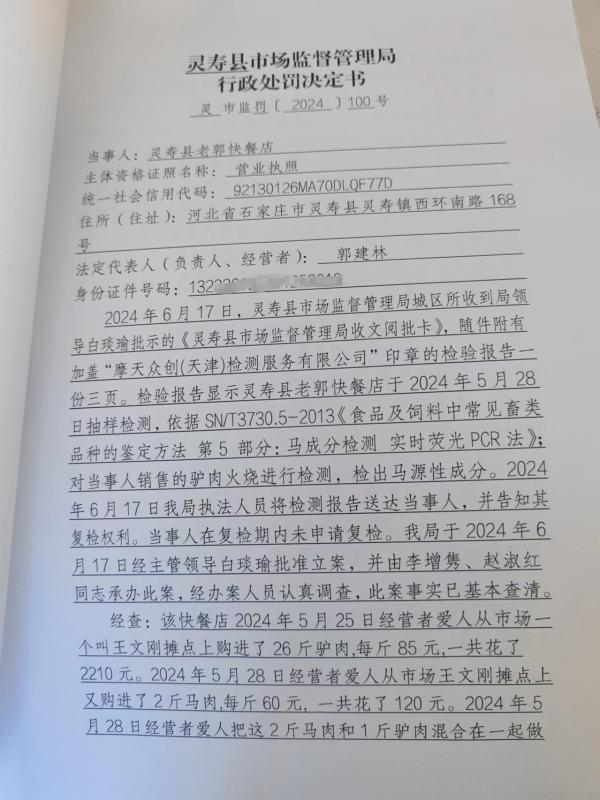 灵寿县市场监督管理局
行政处罚决定书
灵 市监罚〔 2024 〕100 号
当事人：灵寿县老郭快餐店
主体资格证照名称： 营业执照
统一社会信用代码： 92130126MA70DLQF77D
住所（住址）：河北省石家庄市灵寿县灵寿镇西环南路 168
号
法定代表人（负责人、经营者）： 郭建林
身份证件号码：
2024 年 6 月 17 日，灵寿县市场监督管理局城区所收到局领
导白琰瑜批示的《灵寿县市场监督管理局收文阅批卡》，随件附有
加盖“摩天众创(天津)检测服务有限公司”印章的检验报告一
份三页。检验报告显示灵寿县老郭快餐店于 2024 年 5 月 28
日抽样检测，依据 SN/T3730.5-2013《食品及饲料中常见畜类
品种的鉴定方法 第 5 部分：马成分检测 实时荧光 PCR 法》；
对当事人销售的驴肉火烧进行检测，检出马源性成分。2024
年 6 月 17 日我局执法人员将检测报告送达当事人，并告知其
复检权利。当事人在复检期内未申请复检。我局于 2024 年 6
月 17 日经主管领导白琰瑜批准立案，并由李增隽、赵淑红
同志承办此案，经办案人员认真调查，此案事实已基本查清。
经查：该快餐店 2024 年 5 月 25 日经营者爱人从市场一
个叫王文刚摊点上购进了 26 斤驴肉,每斤 85 元,一共花了
2210 元。2024 年 5 月 28 日经营者爱人从市场王文刚摊点上
又购进了 2 斤马肉,每斤 60 元, 一共花了 120 元。2024 年 5
月 28 日经营者爱人把这 2 斤马肉和 1 斤驴肉混合在一起做